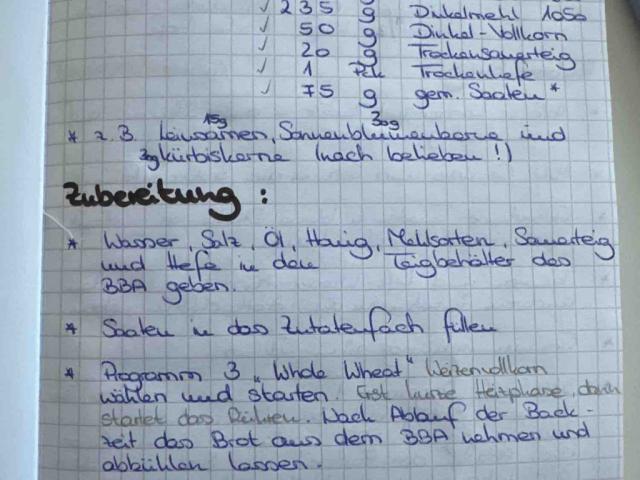 ✓ 235 g Dinkelmehl 1050
✓ 50 g Dinkel-Vollkorn
✓ 20 g Trockensauerteig
✓ 1 Pck Trockenhefe
✓ 75 g gem. Saaten *
15g 30g
* z.B. Leinsamen, Sonnenblumenkerne und
30g Kürbiskerne (nach belieben!)
Zubereitung:
* Wasser, Salz, Öl, Honig, Mehlsorten, Sauerteig
und Hefe in den Teigbehälter des
BBA geben.
* Saaten in das Zutatenfach füllen
* Programm 3 "Whole Wheat" Weizenvollkorn
wählen und starten. Erst kurze Heizphase, dann
startet das Rühren. Nach Ablauf der Back-
zeit das Brot aus dem BBA nehmen und
abkühlen lassen.